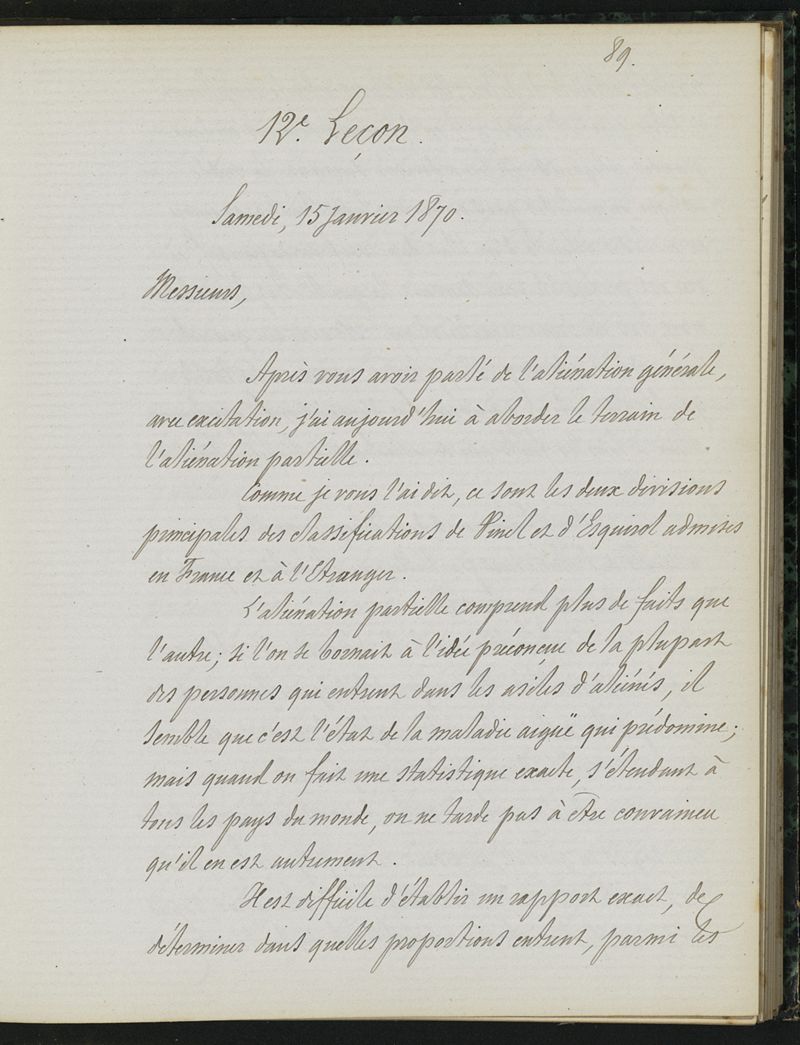 89.
12e. Leçon.
Samedi, 15 Janvier 1870.
Messieurs,
Après vous avoir parlé de l'aliénation générale,
avec excitation, j'ai aujourd'hui à aborder le terrain de
l'aliénation partielle.
Comme je vous l'ai dit, ce sont les deux divisions
principales des classifications de Pinel et d'Esquirol admises
en France et à l'Etranger.
L'aliénation partielle comprend plus de faits que
l'autre; si l'on se bornait à l'idée préconçue de la plupart
des personnes qui entrent dans les asiles d'aliénés, il
semble que c'est l'état de la maladie aiguë qui prédomine;
mais quand on fait une statistique exacte, s'étendant à
tous les pays du monde, on ne tarde pas à être convaincu
qu'il en est autrement.
Il est difficile d'établir un rapport exact, de
déterminer dans quelles proportions entrent, parmi les